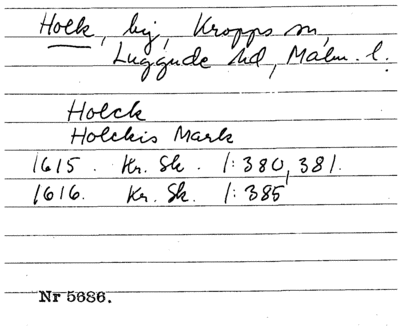 Holk, by, Kropps sn,
Luggude hd, Malm. l.
Holck
Holckis Mark
1615. Kr. Sk. 1:380, 381.
1616. Kr. Sk. 1:385
Nr 5686.